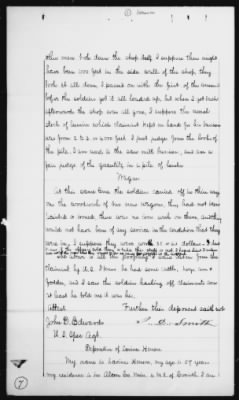 other men tore down the shop itself. I suppose there might
have been 1000 feet in the side walls of the shop, they
took it all down. I passed on with the first of the command
before the soldiers got it all loaded up, but when I got back
afterwards the shop was all gone. I suppose the usual
stock of lumber which claimant kept on hands for his business
was from 2 to 3 or 4000 feet. I just judge from the looks of
the pile. I am used to the saw mill business, and am a
fair judge of the quantity in a pile of lumber
Wagon
At the same time the soldiers carried off in this way
the woodwork of his new wagon, they had not been
painted or ironed, there was no iron work on them, and they
would not have been of any service in the condition that they
were in. I suppose they were worth 25 or 30 dollars. I
The above is all the property I saw taken from the
claimant by U.S. I knew he had some cattle, hogs, corn &
fodder, and I saw the soldiers hauling off claimants corn
at least he told me it was his.
Attest Further this deponent saith not
John D. Edwards
U.S. Spec Agt. Smith
Deposition of Lavina Henson
My name is Lavina Henson, my age is 57 years
my residence is in Co. Miss. I am
7